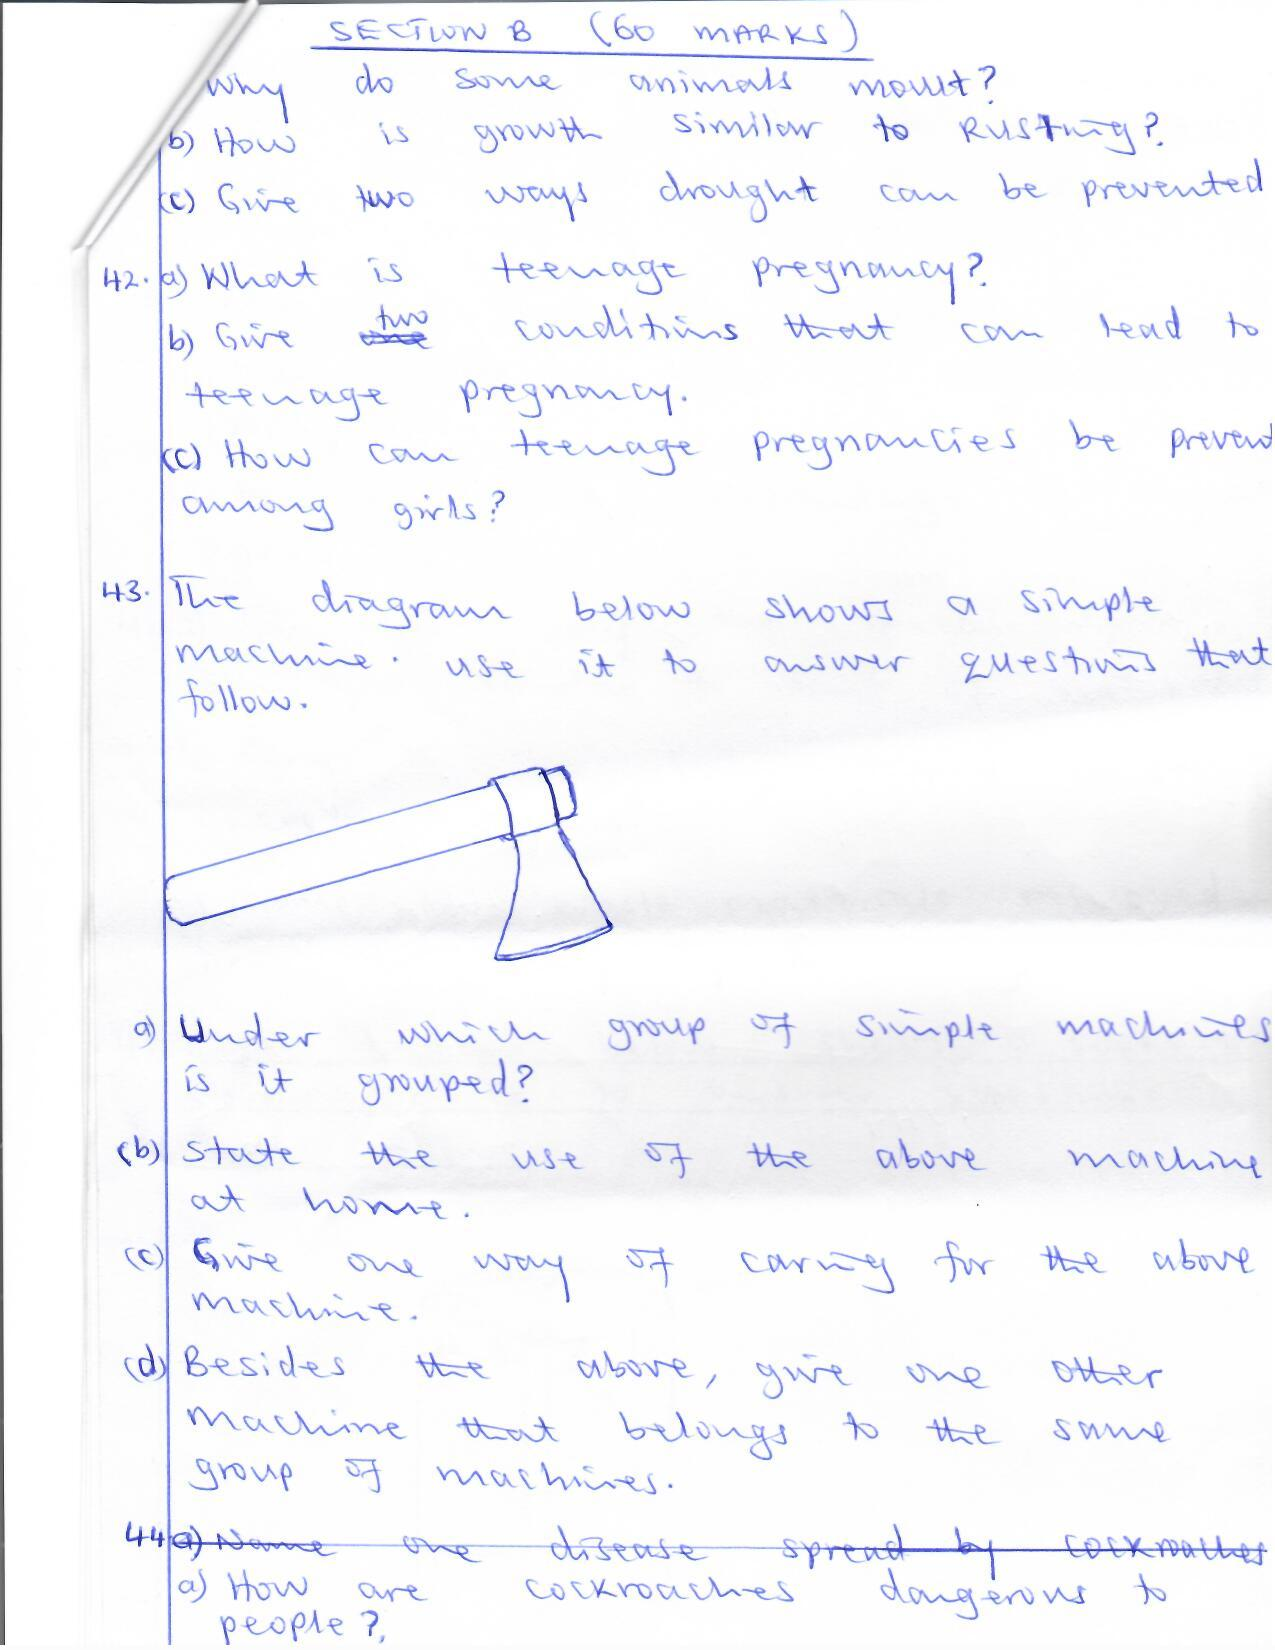 SECTION B (60 MARKS)
Why do some animals moult?
b) How is growth similar to Rusting?
(c) Give two ways drought can be prevented
42. a) What is teenage pregnancy?
b) Give two conditions that can lead to
teenage pregnancy.
(c) How can teenage pregnancies be prevent
among girls?
43. The diagram below shows a simple
machine. use it to answer questions that
follow.
a) Under which group of simple machines
is it grouped?
(b) State the use of the above machine
at home.
(c) Give one way of caring for the above
machine.
(d) Besides the above, give one other
machine that belongs to the same
group of machines.
44 a) Name one disease spread by cockroaches
a) How are cockroaches dangerous to
people?